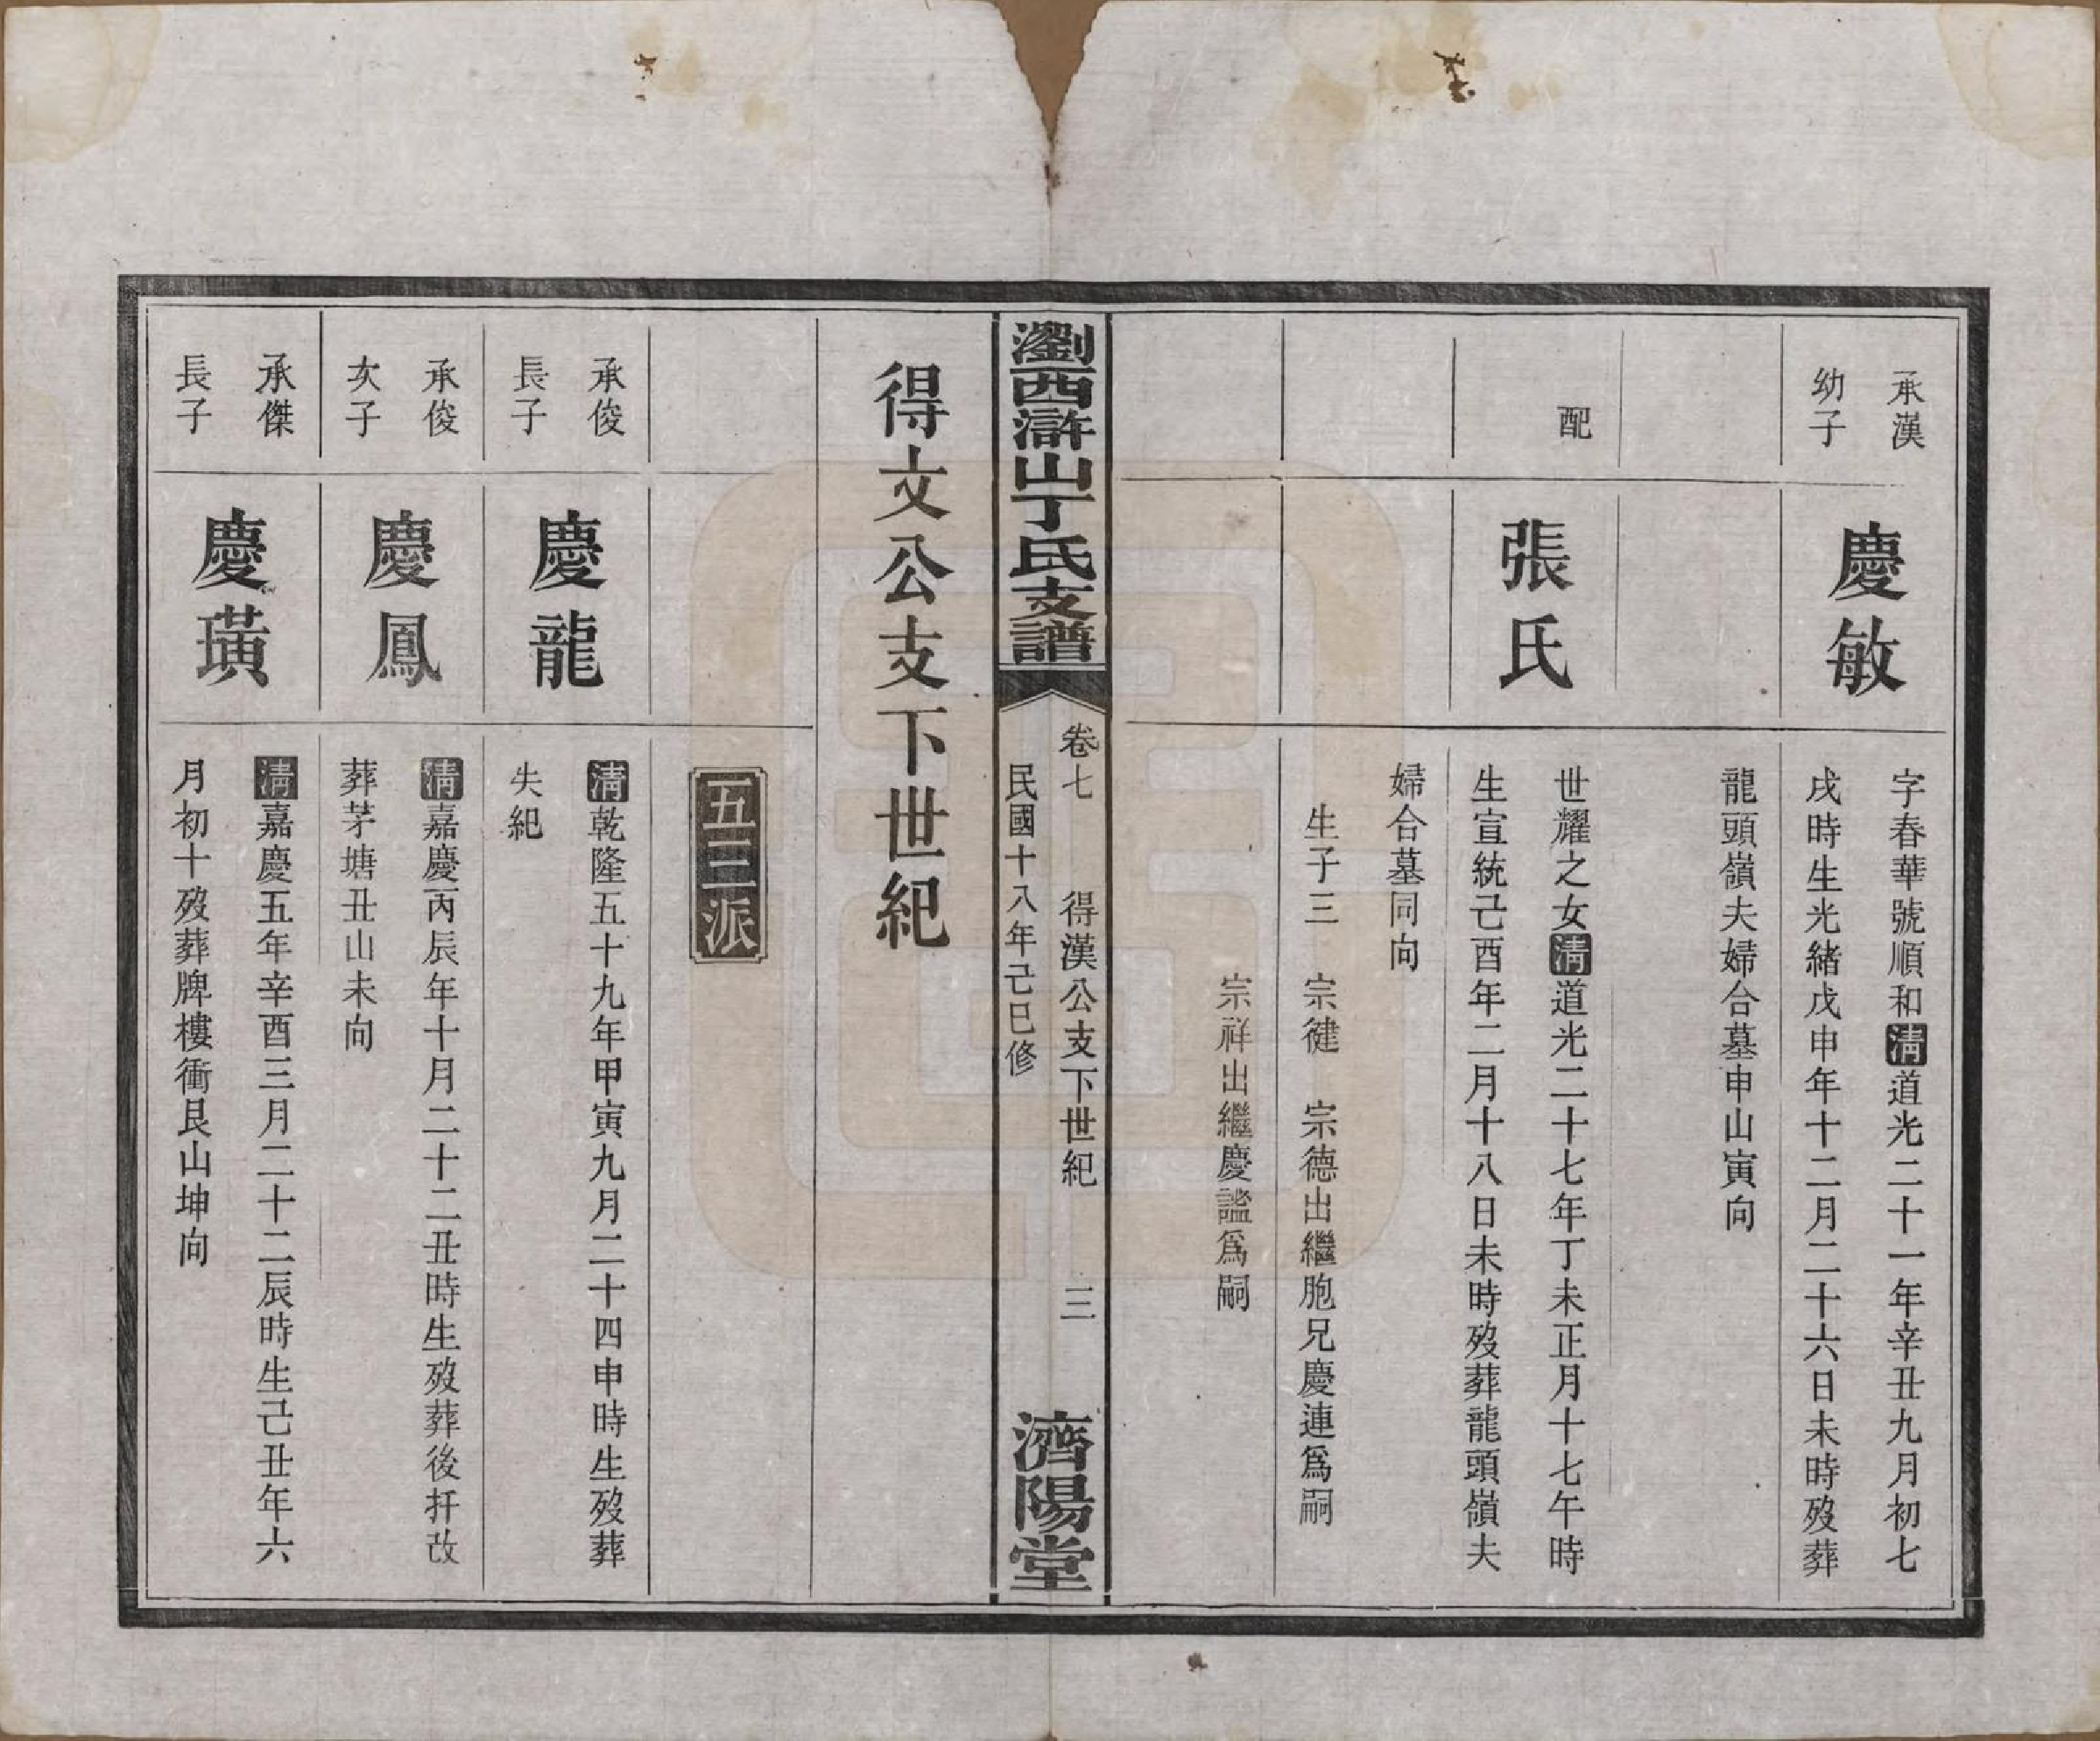 承漢
幼子
慶敏
字春華號順和清道光二十一年辛丑九月初七
戌時生光緒戊申年十二月二十六日未時歿葬
龍頭嶺夫婦合墓申山寅向
配
張氏
世耀之女清道光二十七年丁未正月十七午時
生宣統己酉年二月十八日未時歿葬龍頭嶺夫
婦合墓同向
生子三　宗健　宗德出繼胞兄慶連爲嗣
宗祥出繼慶謐爲嗣
瀏西滸山丁氏支譜
卷七　得漢公支下世紀　三
民國十八年己巳修
濟陽堂
得文公支下世紀
五三派
承俊
長子
慶龍
清乾隆五十九年甲寅九月二十四申時生歿葬
失紀
承俊
次子
慶鳳
清嘉慶丙辰年十月二十二丑時生歿葬後扦改
葬茅塘丑山未向
承傑
長子
慶璜
清嘉慶五年辛酉三月二十二辰時生己丑年六
月初十歿葬牌樓衝艮山坤向